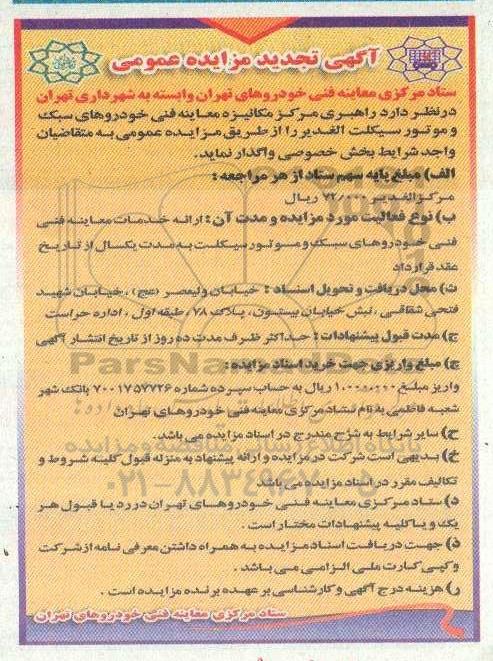 آگهی تجدید مزایده عمومی
ستاد مرکزی معاینه فنی خودروهای تهران وابسته به شهرداری تهران
در نظر دارد راهبری مرکز مکانیزه معاینه فنی خودروهای سبک
و موتور سیکلت الغدیر را از طریق مزایده عمومی به متقاضیان
واجد شرایط بخش خصوصی واگذار نماید.
الف) مبلغ پایه سهم ستاد از هر مراجعه :
مرکز الغدیر ریال
ب) نوع فعالیت مورد مزایده و مدت آن : ارائه خدمات معاینه فنی
فنی خودروهای سبک و موتور سیکلت به مدت یکسال از تاریخ
عقد قرارداد
ت) محل دریافت و تحویل اسناد : خیابان ولیعصر (عج) ، خیابان شهید
فتحی شقاقی ، نبش خیابان بیستون ، پلاک ۷۸ ، طبقه اول ، اداره حراست
ج) مدت قبول پیشنهادات : حداکثر ظرف مدت ده روز از تاریخ انتشار آگهی
چ) مبلغ واریزی جهت خرید اسناد مزایده :
واریز مبلغ ریال به حساب سپرده شماره ۷۰۰۱۷۵۷۷۲۶ بانک شهر
شعبه فاطمی به نام ستاد مرکزی معاینه فنی خودروهای تهران
ح) سایر شرایط به شرح مندرج در اسناد مزایده می باشد.
خ) بدیهی است شرکت در مزایده و ارائه پیشنهاد به منزله قبول کلیه شروط و
تکالیف مقرر در اسناد مزایده می باشد
د) ستاد مرکزی معاینه فنی خودروهای تهران در رد یا قبول هر
یک و یا کلیه پیشنهادات مختار است .
ذ) جهت دریافت اسناد مزایده به همراه داشتن معرفی نامه از شرکت
و کپی کارت ملی الزامی می باشد .
ر) هزینه درج آگهی و کارشناسی بر عهده برنده مزایده است .
ستاد مرکزی معاینه فنی خودروهای تهران
ParsNamadData
۰۲۱-۸۸۳۴۹۶۷۰-۵